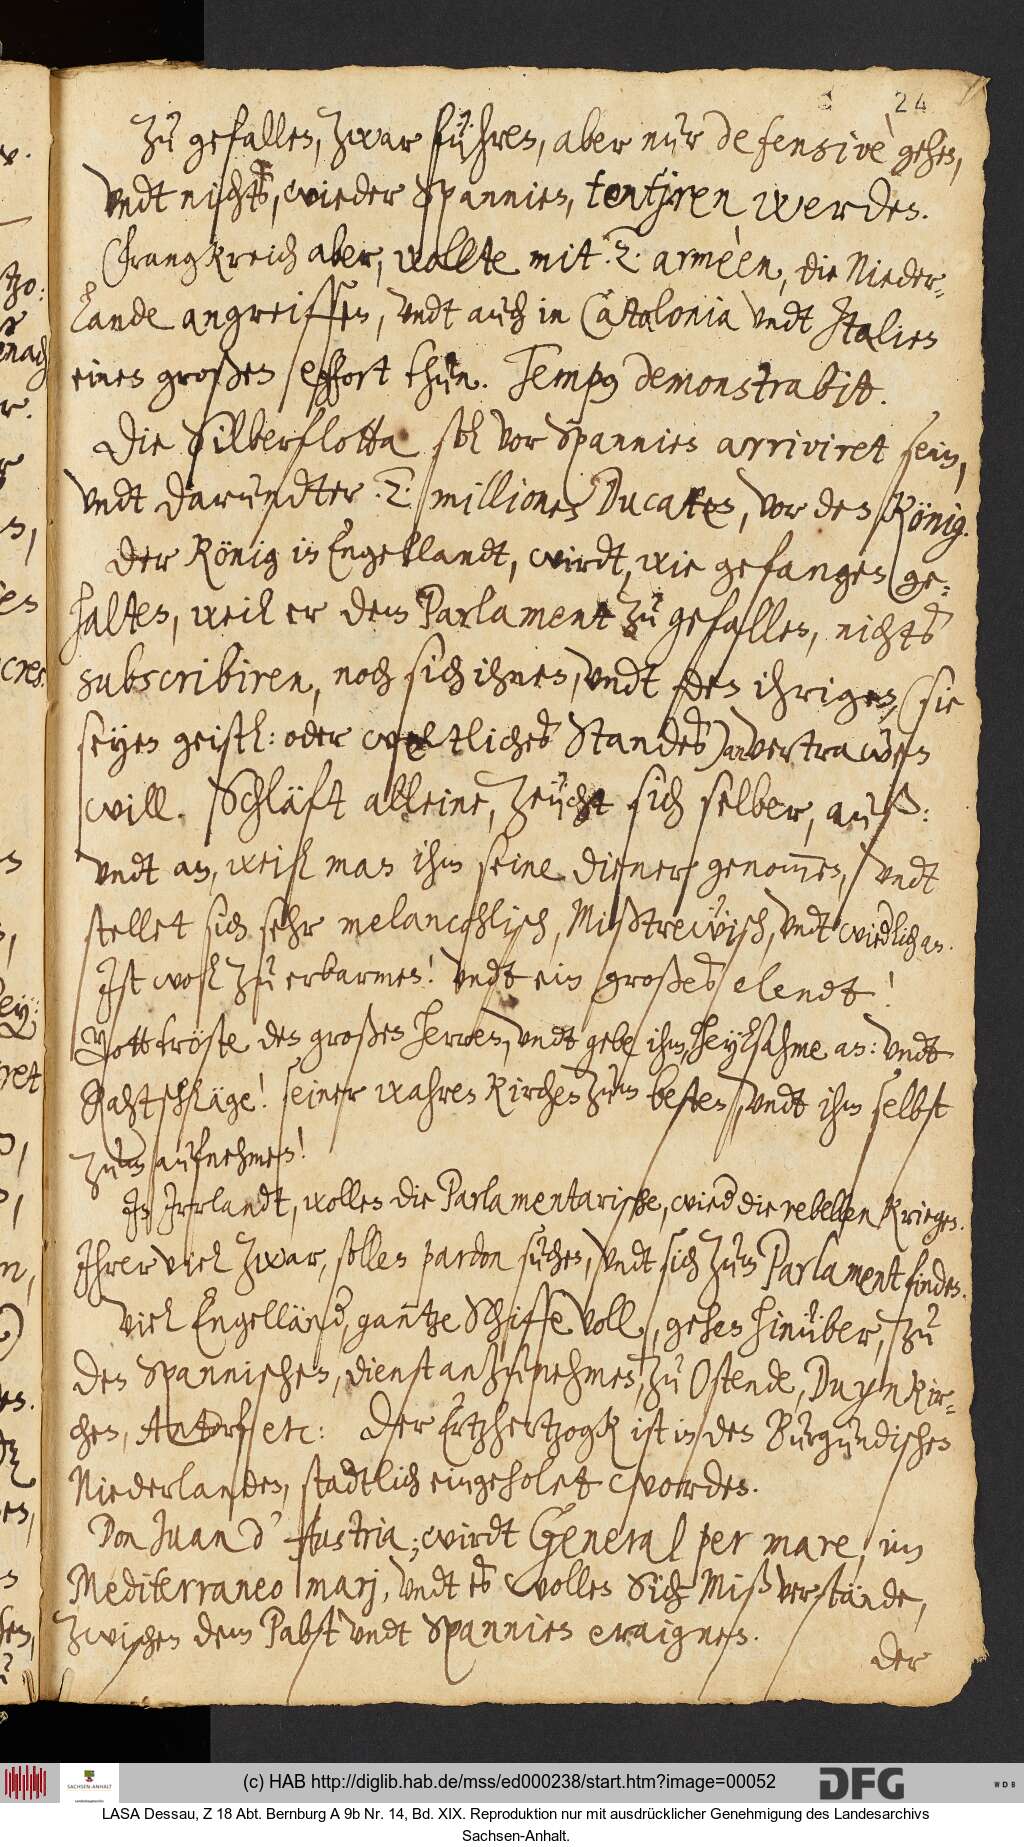 24
Zu gefallen, zwar führen, aber nur defensive gehen,
undt nichts, wieder Spannien, tentiren werden.
Frangkreich aber, wollte mit .2. arméen, die Nieder-
lande angreiffen, undt auch in Catalonia undt Italien
einen großen effort thun. Tempus demonstrabit.
Die Silberflotta sol vor Spannien arriviret sein,
undt darundter .2. millionen Ducaten, vor den König.
Der König in Engellandt, wirdt, wie gefangen ge-
halten, weil er dem Parlament zu gefallen, nichts
subscribiren, noch sich ihnen, undt den ihrigen, (sie
seyen geistl: oder weltliches Standes) anvertrawen
will. Schläft alleine, zeücht sich selber, auß:
undt an, weil man ihm seine diener genommen, undt
stellet sich sehr melancohlisch, Mißtrewisch, undt an.
Ist wol zu erbarmen! undt ein großes elendt!
Gott tröste den großen Herren, undt gebe ihm, Heylsahme an: undt
Rahtschläge! seiner wahren Kirchen zum besten, undt ihm selbst
zum aufnehmen!
In Irrlandt, wollen die Parlamentarische, wied die rebellen kriegen.
Ihrer viel zwar, sollen pardon suchen, undt sich zum Parlament finden.
Viel Engelländ, gantze Schiffe voll, gehen hinüber, zu
den Spannischen, dienst anzunehmen, zu Ostende, Duynkir-
chen, Antorf etc: Der Ertzhertzogk ist in den Burgundischen
Niederlanden, stadtlich eingeholet worden.
Don Juan d' Austria, wirdt General per mare, im
Mediterraneo mari, undt es wollen sich Mißverstände,
zwischen dem Pabst undt Spannien eraignen.
der
(c) HAB http://diglib.hab.de/mss/ed000238/start.htm?image=00052
SACHSEN-ANHALT
DFG
WDB
LASA Dessau, Z 18 Abt. Bernburg A 9b Nr. 14, Bd. XIX. Reproduktion nur mit ausdrücklicher Genehmigung des Landesarchivs
Sachsen-Anhalt.